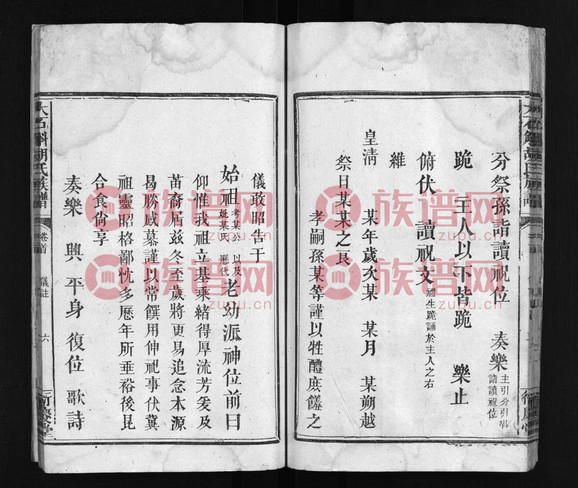 分祭孫詣讀祝位 奏樂 主引分引唱 詣讀祝位
跪 主人以下皆跪 樂止
俯伏 讀祝文 禮生跪誦於主人之右
維
皇清 某年歲次某 某月 某朔越
祭日某某之良
孝嗣孫某等謹以牲醴庶饈之
儀敢昭告于
始祖考某公妣某氏 以及歷代老幼派神位前曰
仰惟我祖立基業緒得厚流芳爰及
苗裔屆茲冬至歲將更易追念本源
曷勝感慕謹以常饌用伸祀事伏冀
祖靈昭格鄙忱多歷年所垂裕後昆
合食尚享
奏樂 興 平身 復位 歌詩
胡氏族譜
卷首
儀註
六
族谱网
zupu.cn